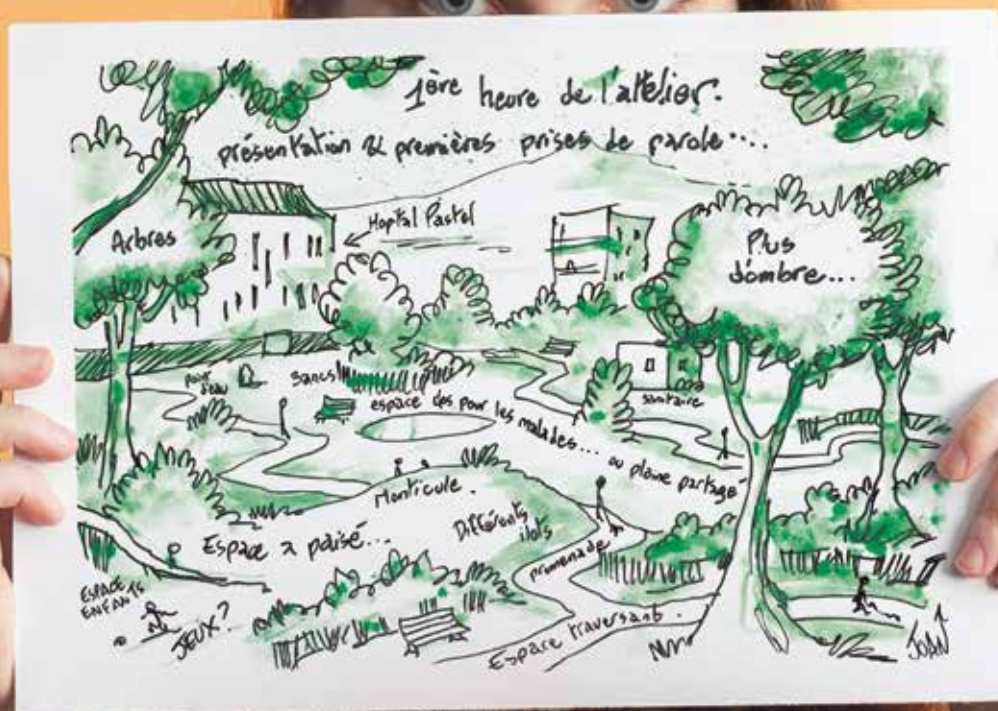 1ère heure de l'atelier.
présentation & premières prises de parole...
Arbres
Hopital Pastel
Plus
d'ombre...
point
d'eau
Bancs
sanitaire
espace des pour les malades... ou pleine partagé
Monticule.
Différents
ilots
Espace apaisé...
promenade
ESPACE
ENFANTS
JEUX?
Espace traversant.
JOAN